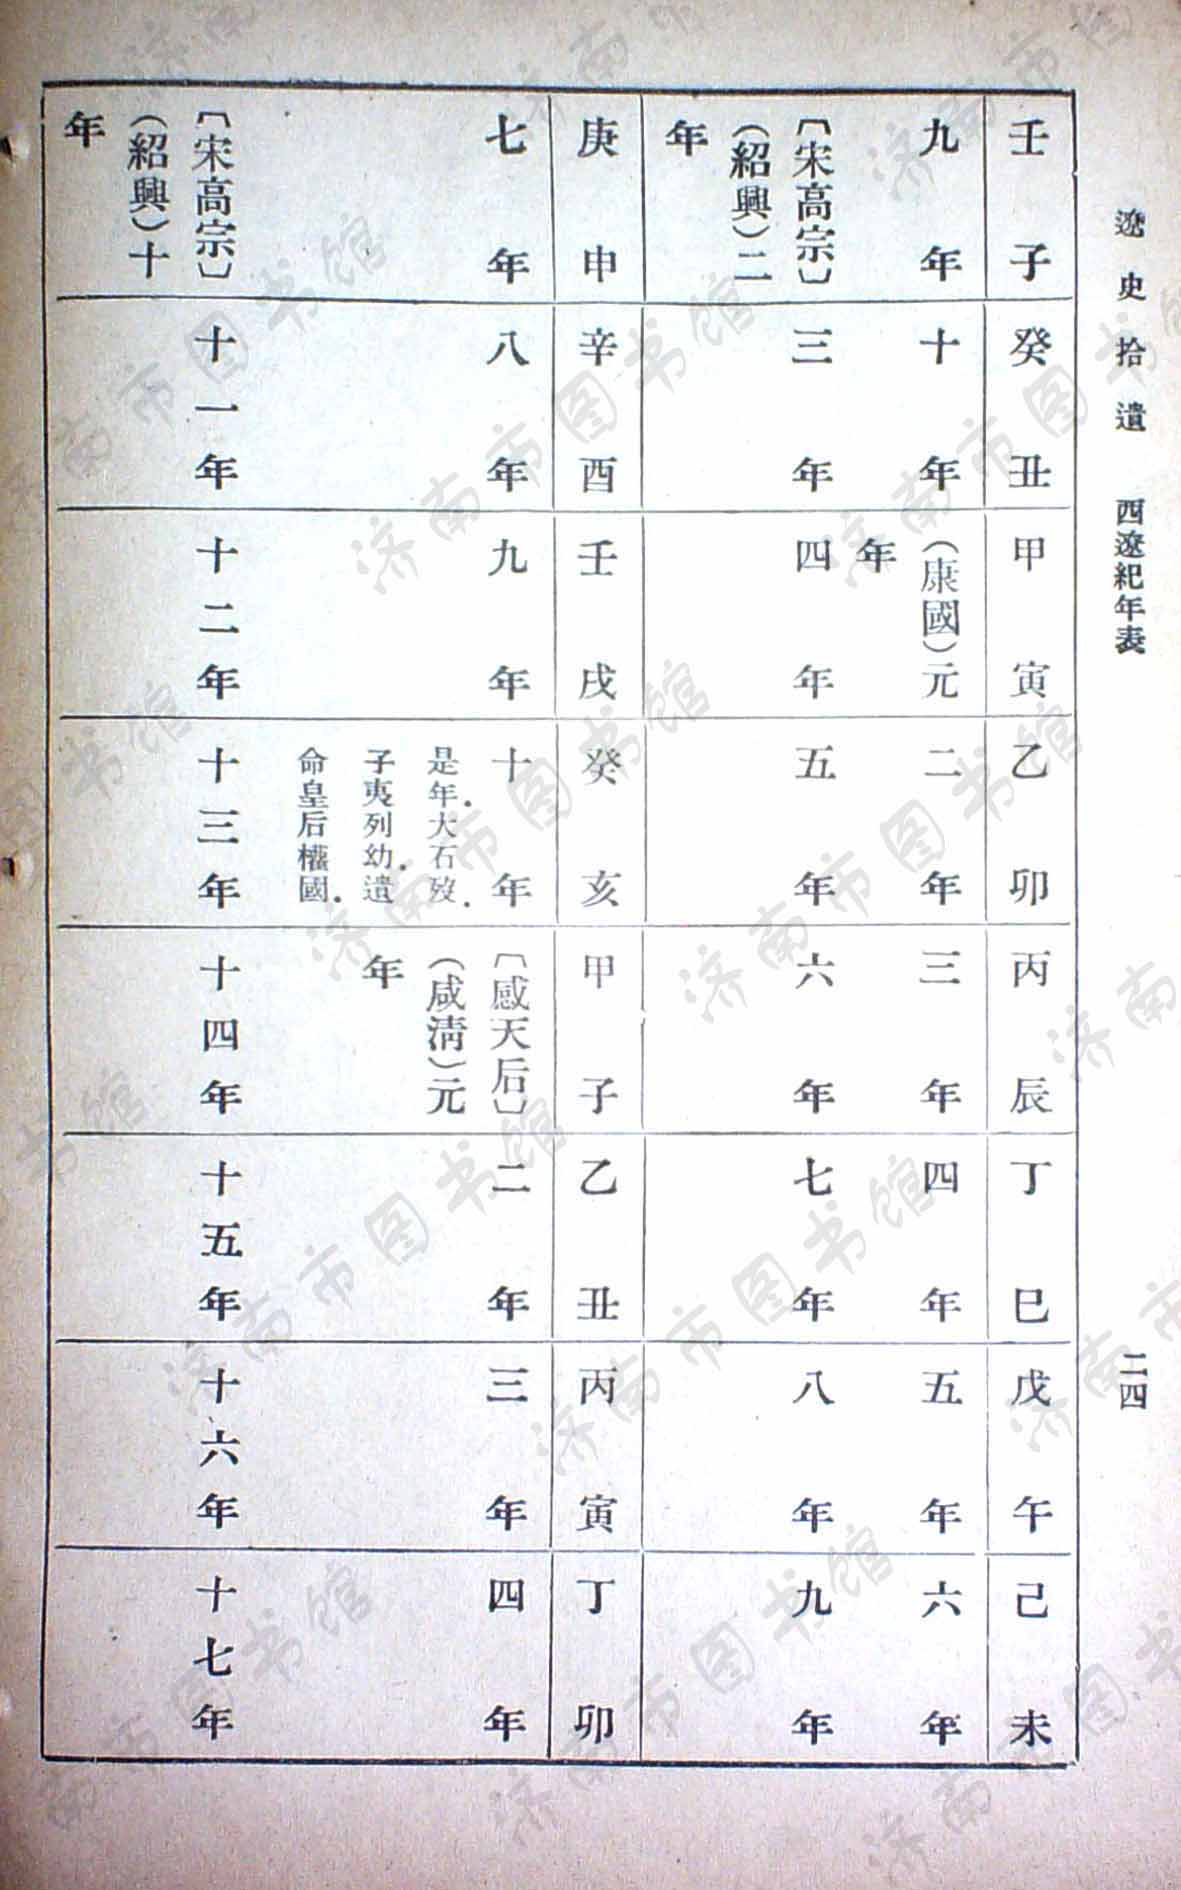 遼史拾遺 西遼紀年表 二四
壬子 癸丑 甲寅 乙卯 丙辰 丁巳 戊午 己未
九年 十年 (康國)元年 二年 三年 四年 五年 六年
〔宋高宗〕(紹興)二年 三年 四年 五年 六年 七年 八年 九年
庚申 辛酉 壬戌 癸亥 甲子 乙丑 丙寅 丁卯
七年 八年 九年 十年 〔感天后〕(咸淸)元年 二年 三年 四年
是年.大石歿.
子夷列幼.遺
命皇后權國.
〔宋高宗〕(紹興)十年 十一年 十二年 十三年 十四年 十五年 十六年 十七年
济南市图书馆